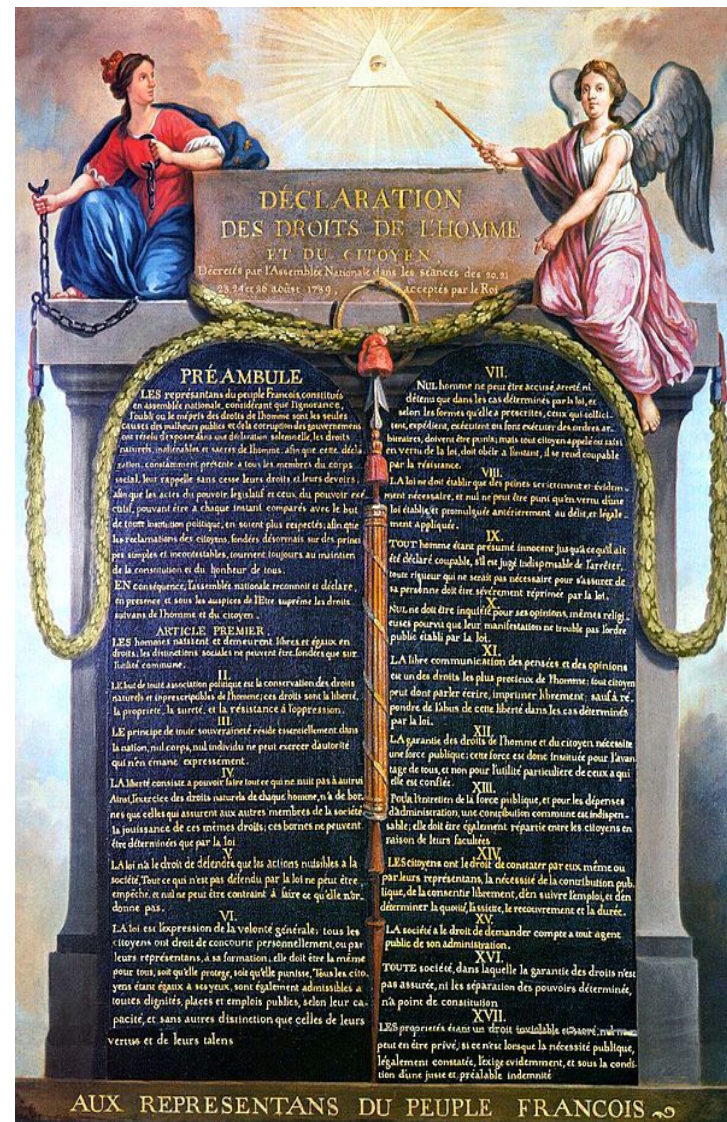 DÉCLARATION
DES DROITS DE L'HOMME
ET DU CITOYEN,
Décretés par l'Assemblée Nationale dans les séances des 20, 21
23, 24 et 26 août 1789, acceptés par le Roi
PRÉAMBULE
LES représantans du peuple François, constitués
en assemblée nationale, considérant que l'ignorance,
l'oubli ou le mépris des droits de l'homme sont les seules
causes des malheurs publics et de la corruption des gouvernemens
ont résolu d'exposer dans une déclaration solemnelle, les droits
naturels, inaliénables et sacrés de l'homme; afin que cette décla-
ration, constamment présente a tous les membres du corps
social, leur rappelle sans cesse leurs droits et leurs devoirs;
afin que les actes du pouvoir législatif et ceux du pouvoir exé-
cutif, pouvant être a chaque instant comparés avec le but
de toute institution politique, en soient plus respectés; afin que
les reclamations des citoyens, fondées désormais sur des princi-
pes simples et incontestables, tournent toujours au maintien
de la constitution et du bonheur de tous.
EN conséquence, l'assemblée nationale reconnoit et déclare,
en presence et sous les auspices de l'Etre suprême les droits
suivans de l'homme et du citoyen.
ARTICLE PREMIER.
LES hommes naissent et demeurent libres et égaux en
droits; les distinctions sociales ne peuvent être fondées que sur
l'utilité commune.
II.
LE but de toute association politique est la conservation des droits
naturels et inprescriptibles de l'homme; ces droits sont la liberté,
la propriété, la sureté, et la résistance à l'oppression.
III.
LE principe de toute souveraineté réside essentiellement dans
la nation, nul corps, nul individu ne peut exercer d'autorité
qui n'en émane expressément.
IV.
LA liberté consiste a pouvoir faire tout ce qui ne nuit pas à autrui
Ainsi, l'exercice des droits naturels de chaque homme, n'a de bor-
nes que celles qui assurent aux autres membres de la société
la jouissance de ces mêmes droits; ces bornes ne peuvent
être déterminées que par la loi
V.
LA loi n'a le droit de défendre que les actions nuisibles a la
société, Tout ce qui n'est pas défendu par la loi ne peut être
empêché, et nul ne peut être contraint à faire ce qu'elle n'or-
donne pas.
VI.
LA loi est l'expression de la volonté générale; tous les
citoyens ont droit de concourir personnellement, ou par
leurs représentans, à sa formation; elle doit être la même
pour tous, soit qu'elle protege, soit qu'elle punisse, Tous les cito-
yens étant égaux à ses yeux, sont également admissibles a
toutes dignités, places et emplois publics, selon leur ca-
pacité, et sans autres distinction que celles de leurs
vertus et de leurs talens
VII.
NUL homme ne peut être accusé, arreté, ni
détenu que dans les cas déterminés par la loi, et
selon les formes qu'elle a prescrites, ceux qui sollici-
tent, expédient, exécutent ou font exécuter des ordres ar-
bitraires, doivent être punis; mais tout citoyen appelé ou saisi
en vertu de la loi, doit obéir a l'instant, il se rend coupable
par la résistance.
VIII.
LA loi ne doit établir que des peines strictement et évidem-
ment nécessaire, et nul ne peut être puni qu'en vertu d'une
loi établie, et promulguée antérierement au délit, et légale-
ment appliquée.
IX.
TOUT homme étant présumé innocent jusqu'a ce qu'il ait
été déclaré coupable, s'il est jugé indispensable de l'arrêter,
toute rigueur qui ne serait pas nécessaire pour s'assurer de
sa personne doit être sévèrement réprimée par la loi.
X.
NUL ne doit être inquiété pour ses opinions, mêmes religi-
euses pourvu que leur manifestation ne trouble pas l'ordre
public établi par la loi.
XI.
LA libre communication des pensées et des opinions
est un des droits les plus precieux de l'homme; tout citoyen
peut dont parler écrire, imprimer librement; sauf à ré-
pondre de l'abus de cette liberté dans les cas déterminés
par la loi.
XII.
LA garantie des droits de l'homme et du citoyen nécessite
une force publique; cette force est donc instituée pour l'avan-
tage de tous, et non pour l'utilité particulière de ceux a qui
elle est confiée.
XIII.
Pour l'entretien de la force publique, et pour les dépenses
d'administration, une contribution commune est indispen-
sable; elle doit être également répartie entre les citoyens en
raison de leurs facultées
XIV.
LES citoyens ont le droit de constater par eux même ou
par leurs représentans, la nécessité de la contribution pub-
lique, de la consentir librement, d'en suivre l'emploi, et d'en
déterminer la quotité, l'assiette, le recouvrement et la durée.
XV.
LA société a le droit de demander compte a tout agent
public de son administration.
XVI.
TOUTE société, dans laquelle la garantie des droits n'est
pas assurée, ni les séparation des pouvoirs déterminée,
n'a point de constitution
XVII.
LES proprietés étant un droit inviolable et sacré, nul ne
peut en être privé, si ce n'est lorsque la nécessité publique,
légalement constatée, l'exige evidemment, et sous la condi-
tion d'une juste et préalable indemnité
AUX REPRESENTANS DU PEUPLE FRANCOIS